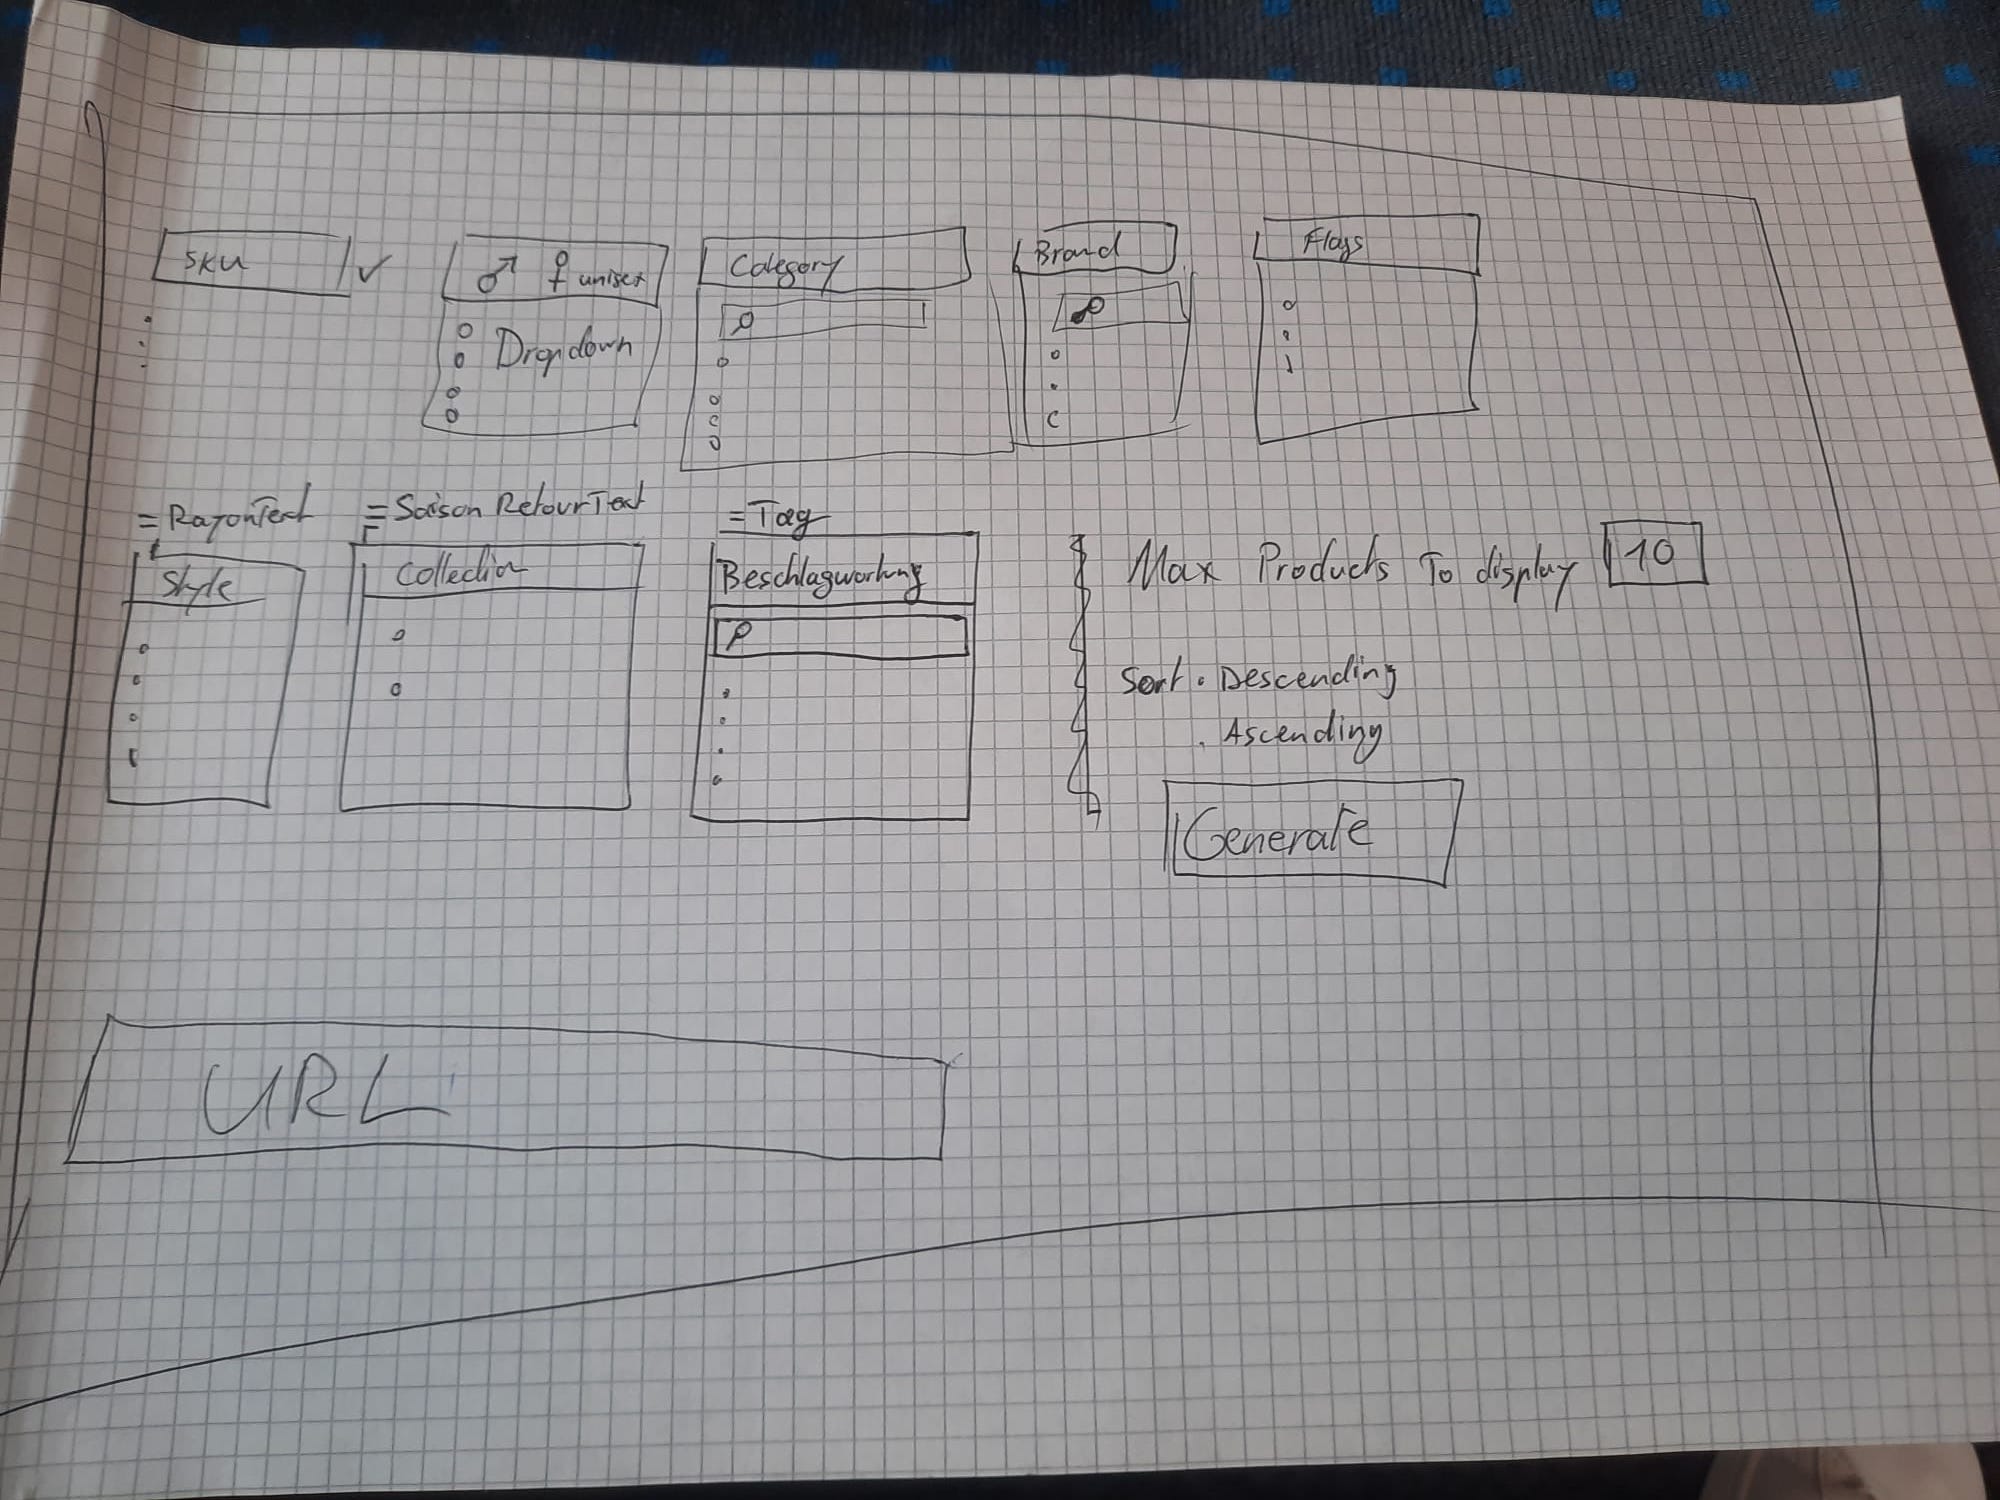 SKU
♂ ♀ unisex
Dropdown
Category
Brand
Flags
= RayonText
Style
= Saison RetourText
Collection
= Tag
Beschlagwortung
Max Products To display 10
Sort . Descending
. Ascending
Generate
URL